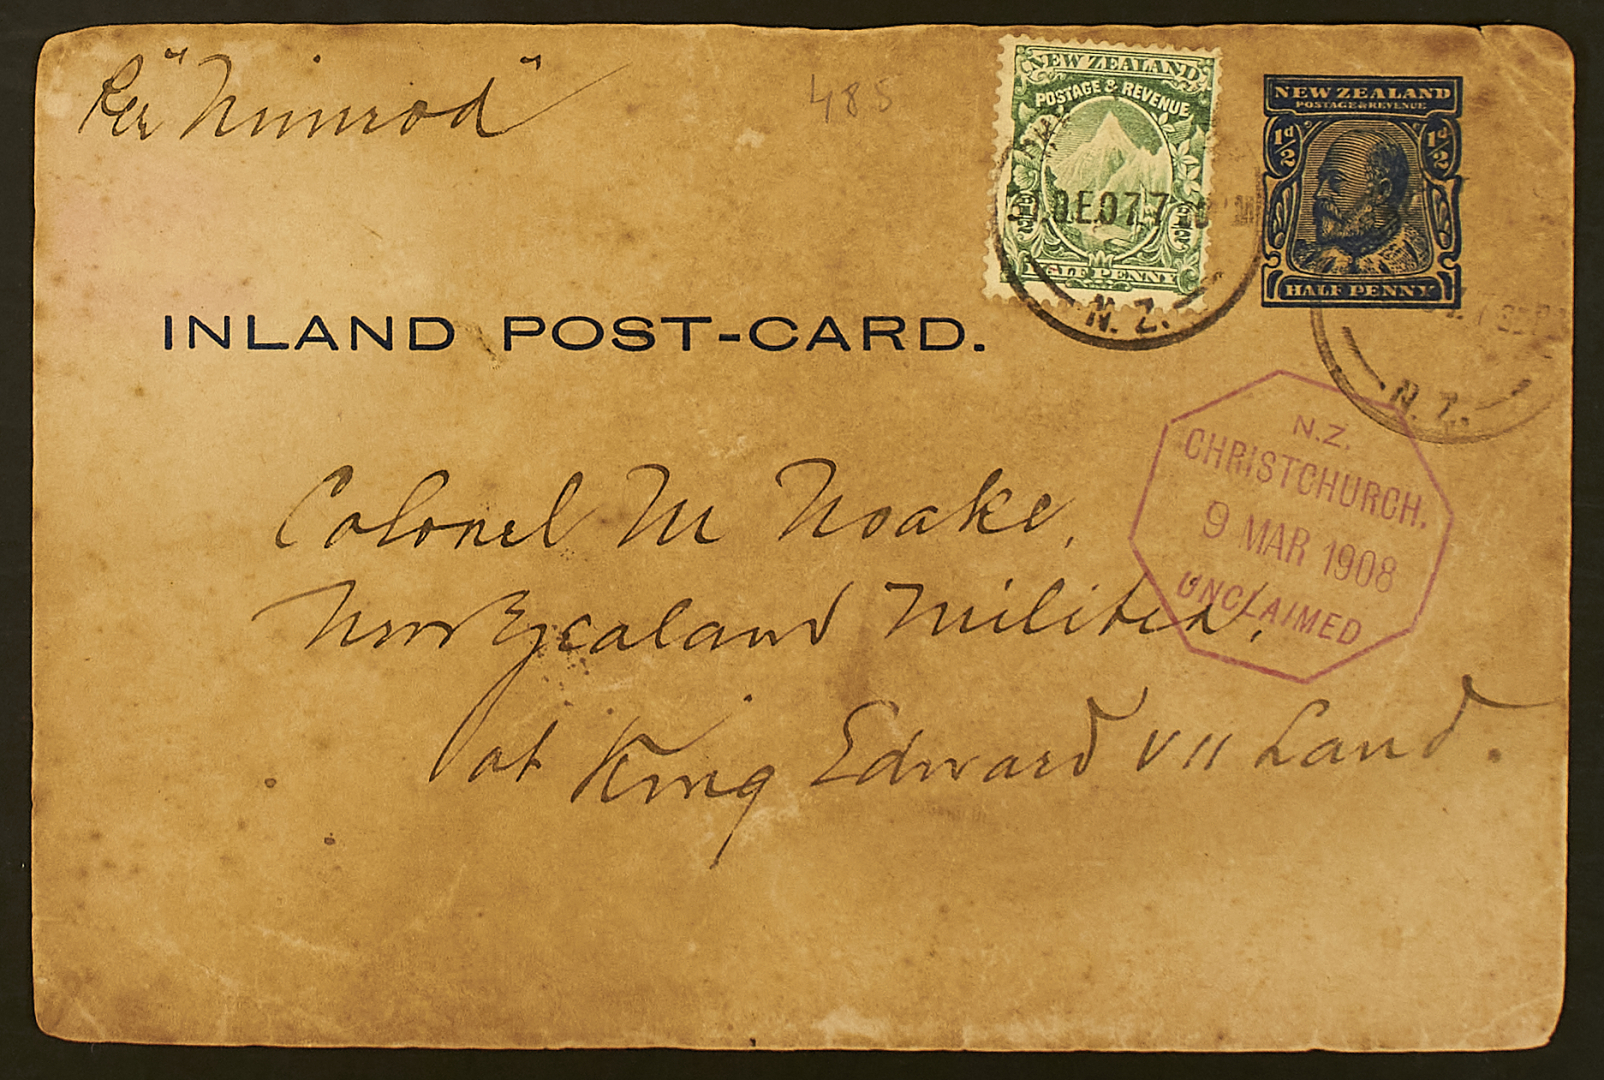 Per "Nimrod"
485
NEW ZEALAND
POSTAGE & REVENUE
HALF PENNY
DE.07 7
N.Z.
NEW ZEALAND
POSTAGE & REVENUE
½d ½d
HALF PENNY
N.Z.
INLAND POST-CARD.
N.Z.
CHRISTCHURCH.
9 MAR 1908
UNCLAIMED
Colonel M Noake,
New Zealand Militia,
at King Edward VII Land.